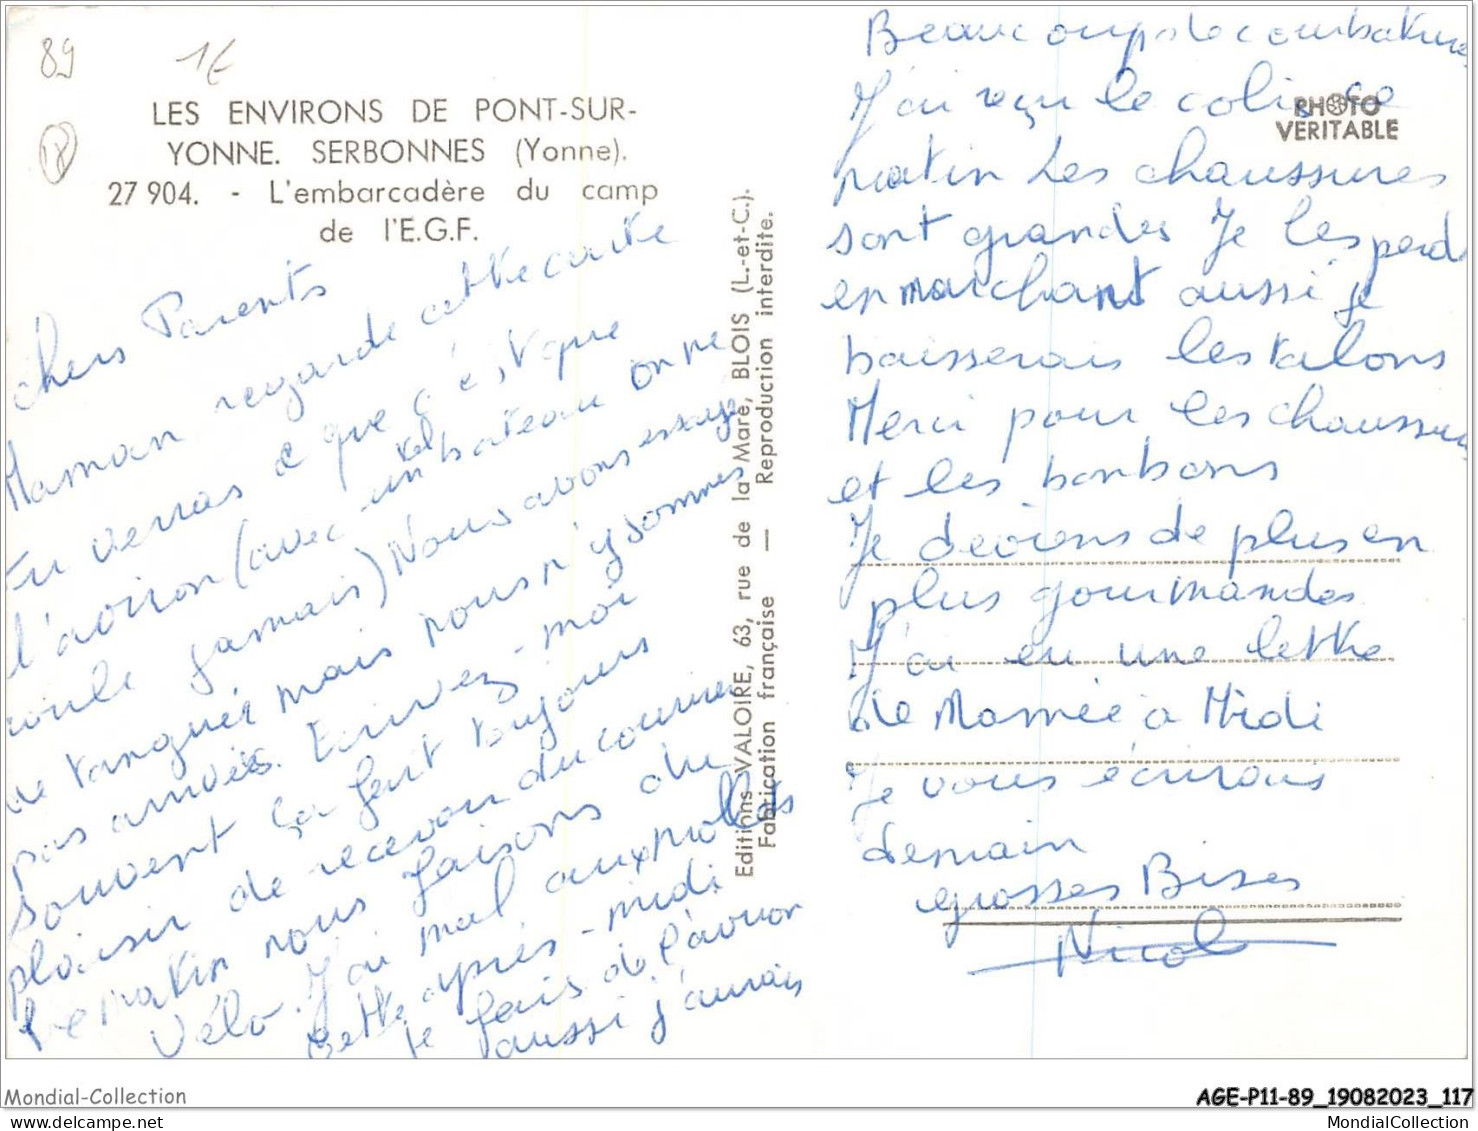 89
1€
18
LES ENVIRONS DE PONT-SUR-
YONNE. SERBONNES (Yonne).
27 904. - L'embarcadère du camp
de l'E.G.F.
chers Parents
Maman regarde cette carte
tu verras ce que c'est que
l'aviron (avec un tel bateau on ne
coule jamais) Nous avons essayé
de tanguer mais nous n'y sommes
pas arrivés. Ecrivez-moi
souvent ça fait toujours
plaisir de recevoir du courrier
Le matin nous faisons du
vélo. J'ai mal aux mollets
cette après-midi
je fais de l'aviron
aussi j'aurais
Editions VALOIRE, 63, rue de la Mare, BLOIS (L.-et-C.).
Fabrication française — Reproduction interdite.
PHOTO
VERITABLE
Beaucoup de courbatures
J'ai reçu le colis ce
matin Les chaussures
sont grandes Je les perd
en marchant aussi je
baisserais les talons
Merci pour les chaussures
et les bonbons
Je deviens de plus en
plus gourmandes
J'ai eu une lettre
de Mamée à Midi
Je vous écrirais
demain
grosses Bises
Nicole
Mondial-Collection
AGE-P11-89_19082023_117
MondialCollection.com
MondialCollection.com